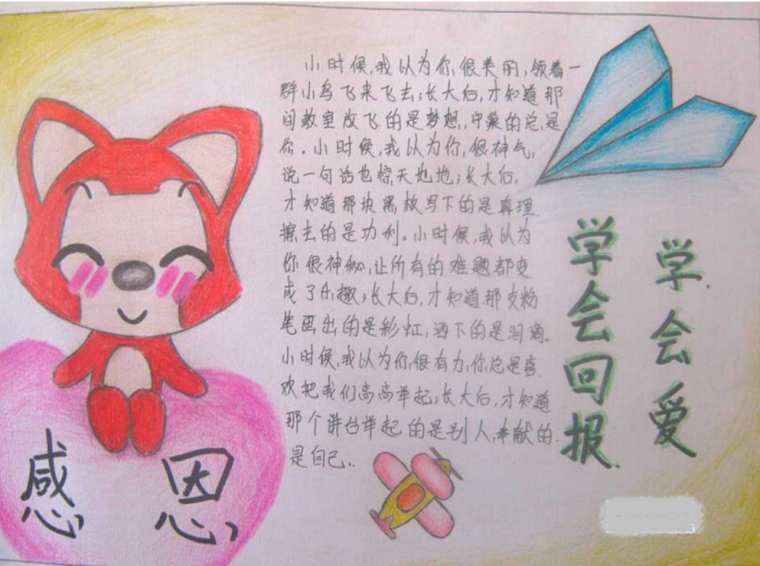 小时候,我以为你,很美丽,领着一
群小鸟飞来飞去;长大后,才知道那
间教室放飞的是梦想,守巢的总是
你。小时候,我以为你,很神气,
说一句话也惊天地地;长大后,
才知道那块黑板写下的是真理
擦去的是力利。小时候,我以为
你很神秘,让所有的难题都变
成了乐趣;长大后,才知道那支粉
笔画出的是彩虹,洒下的是泪滴。
小时候,我以为你,很有力,你总是喜
欢把我们高高举起;长大后,才知道
那个讲台举起的是别人,奉献的
是自己.
学会爱
学会回报
感恩